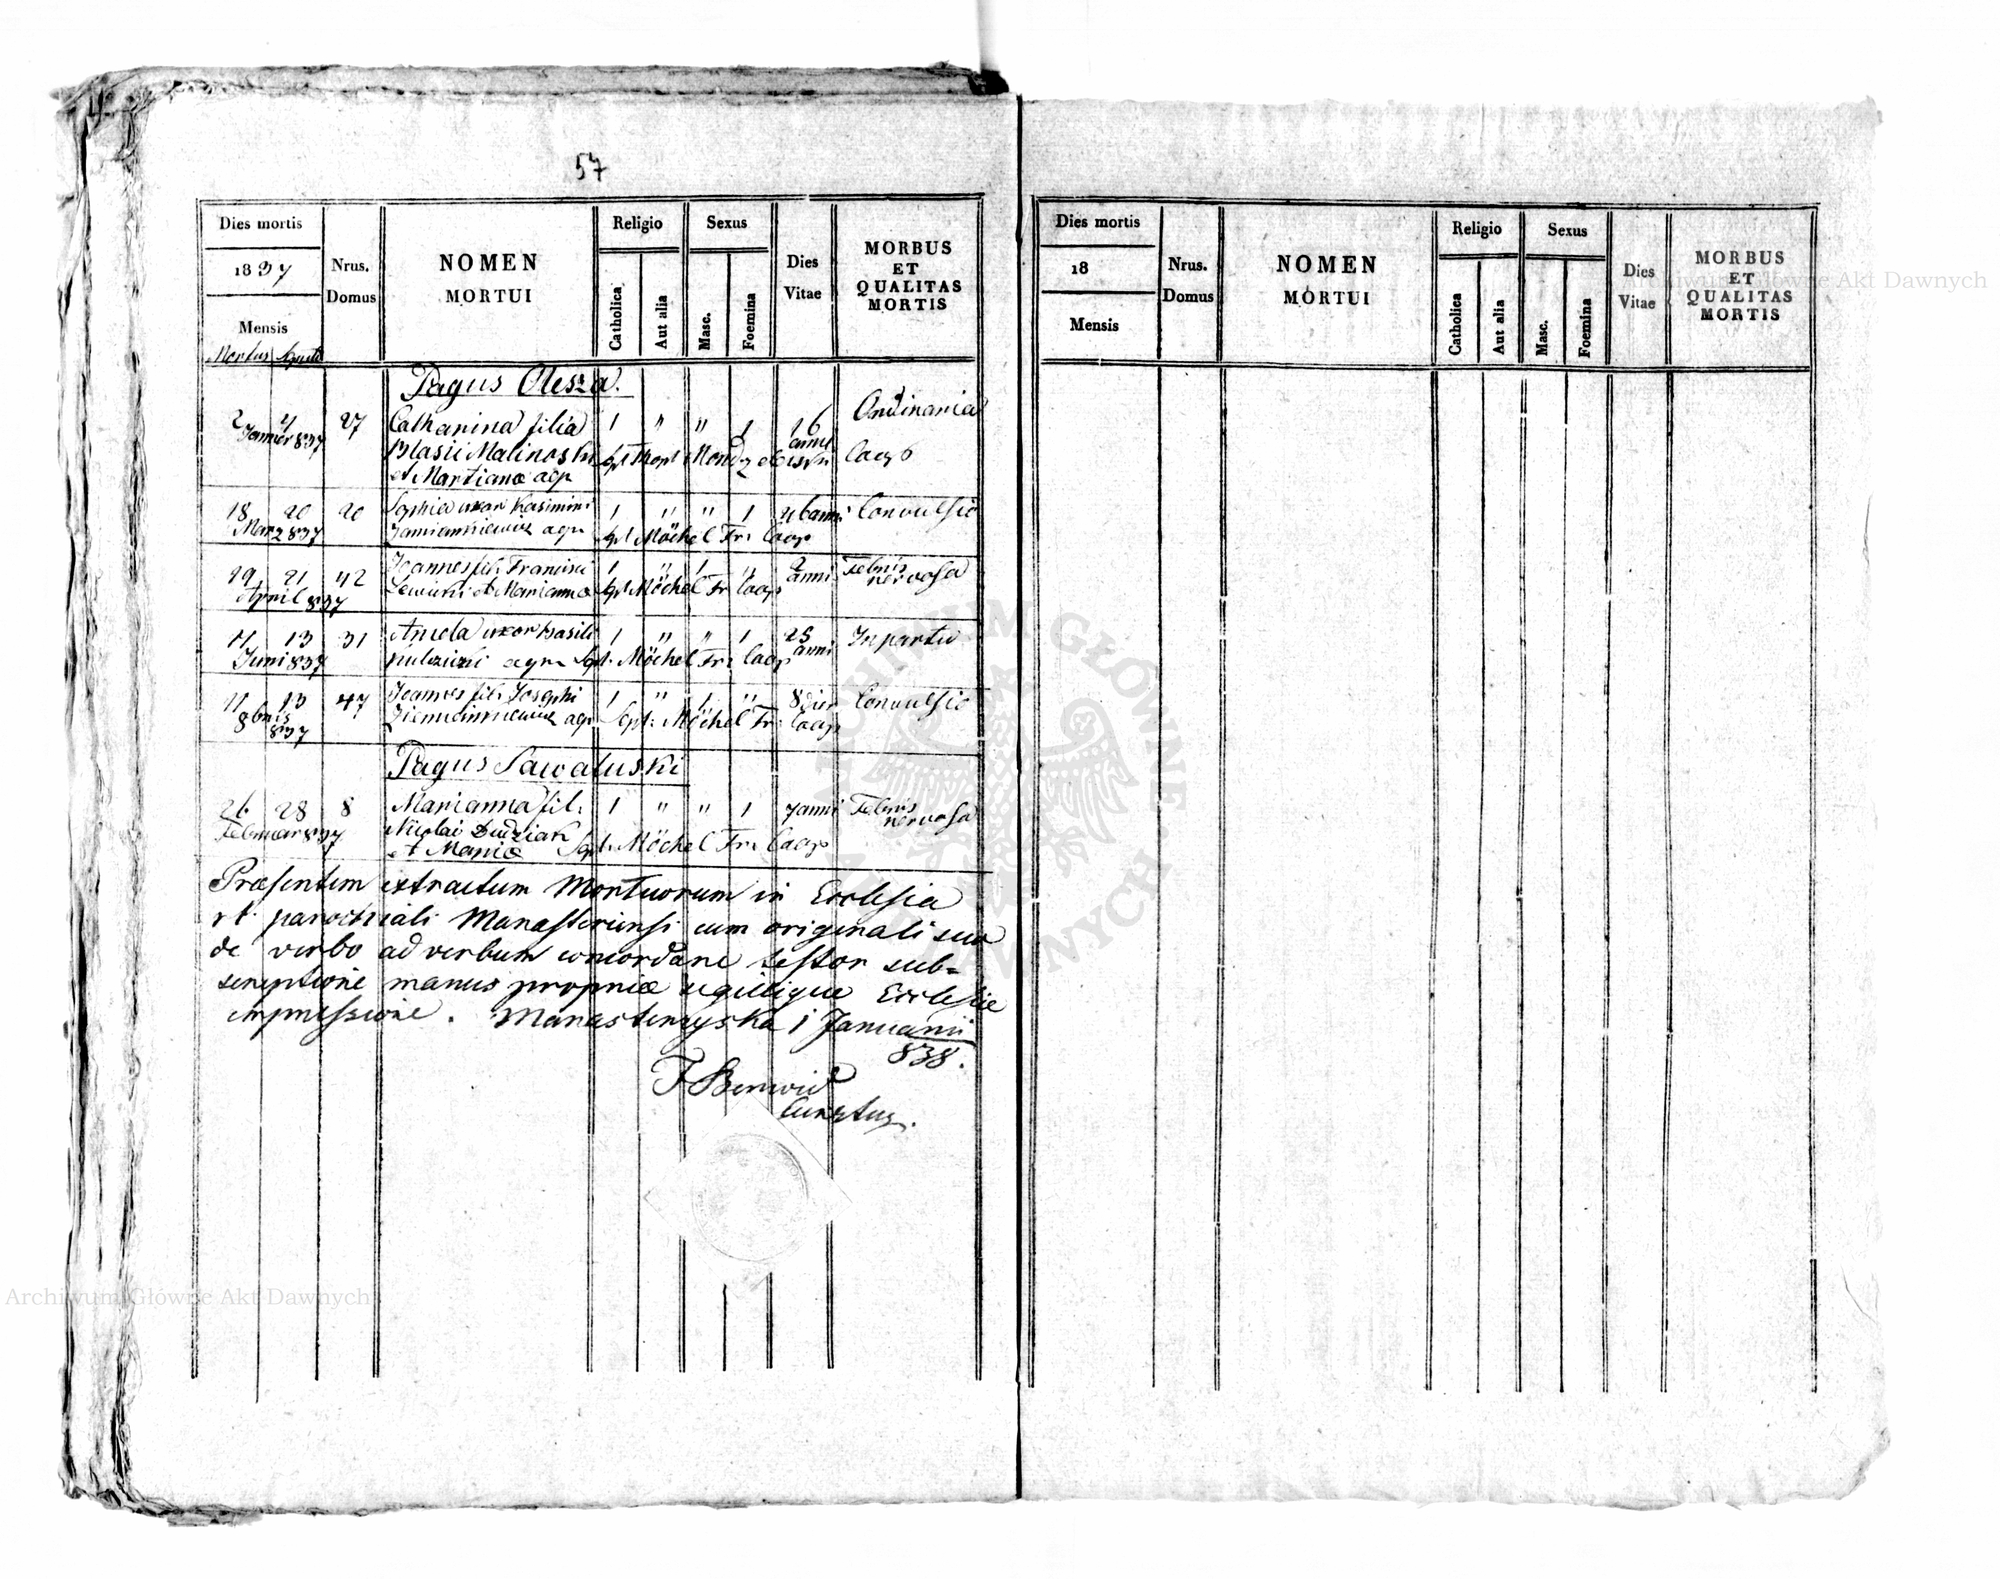 57
Dies mortis
1837
Mensis
Mortus Sepulti
Nrus.
Domus
NOMEN
MORTUI
Religio
Catholica
Aut alia
Sexus
Masc.
Foemina
Dies
Vitae
MORBUS
ET
QUALITAS
MORTIS
Pagus Olesza.
2 4 27 Catharina filia 1 " " 1 16 Ordinaria
Januar 837 Blasii Malinoski anni
et Martiana agr
18 20 20 Sophia uxor Kasimiri 1 " " 1 anni Convulsio
Marz 837 agr Spt Möchel Fr: Coop
19 21 42 Joannes fil: Francisci 1 " 1 " 2 anni Febris
April 837 Lewicki et Marianna Spt Möchel Fr Coop nervosa
11 13 31 Aniela uxor Basili 1 " " 1 25 anni In partu
Juni 837 agr Spt. Möchel Fr: Coop
11 13 47 Joannes fil: Josephi 1 " 1 " 8 dier Convulsio
8bris 837 agr Spt: Möchel Fr: Coop
Pagus Sawaluski
26 28 8 Marianna fil: 1 " " 1 7 anni Febris
Februar 837 Nicolai Dudziak nervosa
et Maria Spt. Möchel Fr: Coop
Præsentem extractum Mortuorum in Ecclesia
rt. parochiali Manasteriensi cum originali suo
de verbo ad verbum concordare testor sub=
scriptione manus propriæ sigillique Ecclesiæ
impressione. Manasterzyska 1 Januarii
838.
Curatus.
Dies mortis
18
Mensis
Nrus.
Domus
NOMEN
MORTUI
Religio
Catholica
Aut alia
Sexus
Masc.
Foemina
Dies
Vitae
MORBUS
ET
QUALITAS
MORTIS
Archiwum Główne Akt Dawnych
Archiwum Główne Akt Dawnych
ARCHIWUM GŁÓWNE AKT DAWNYCH